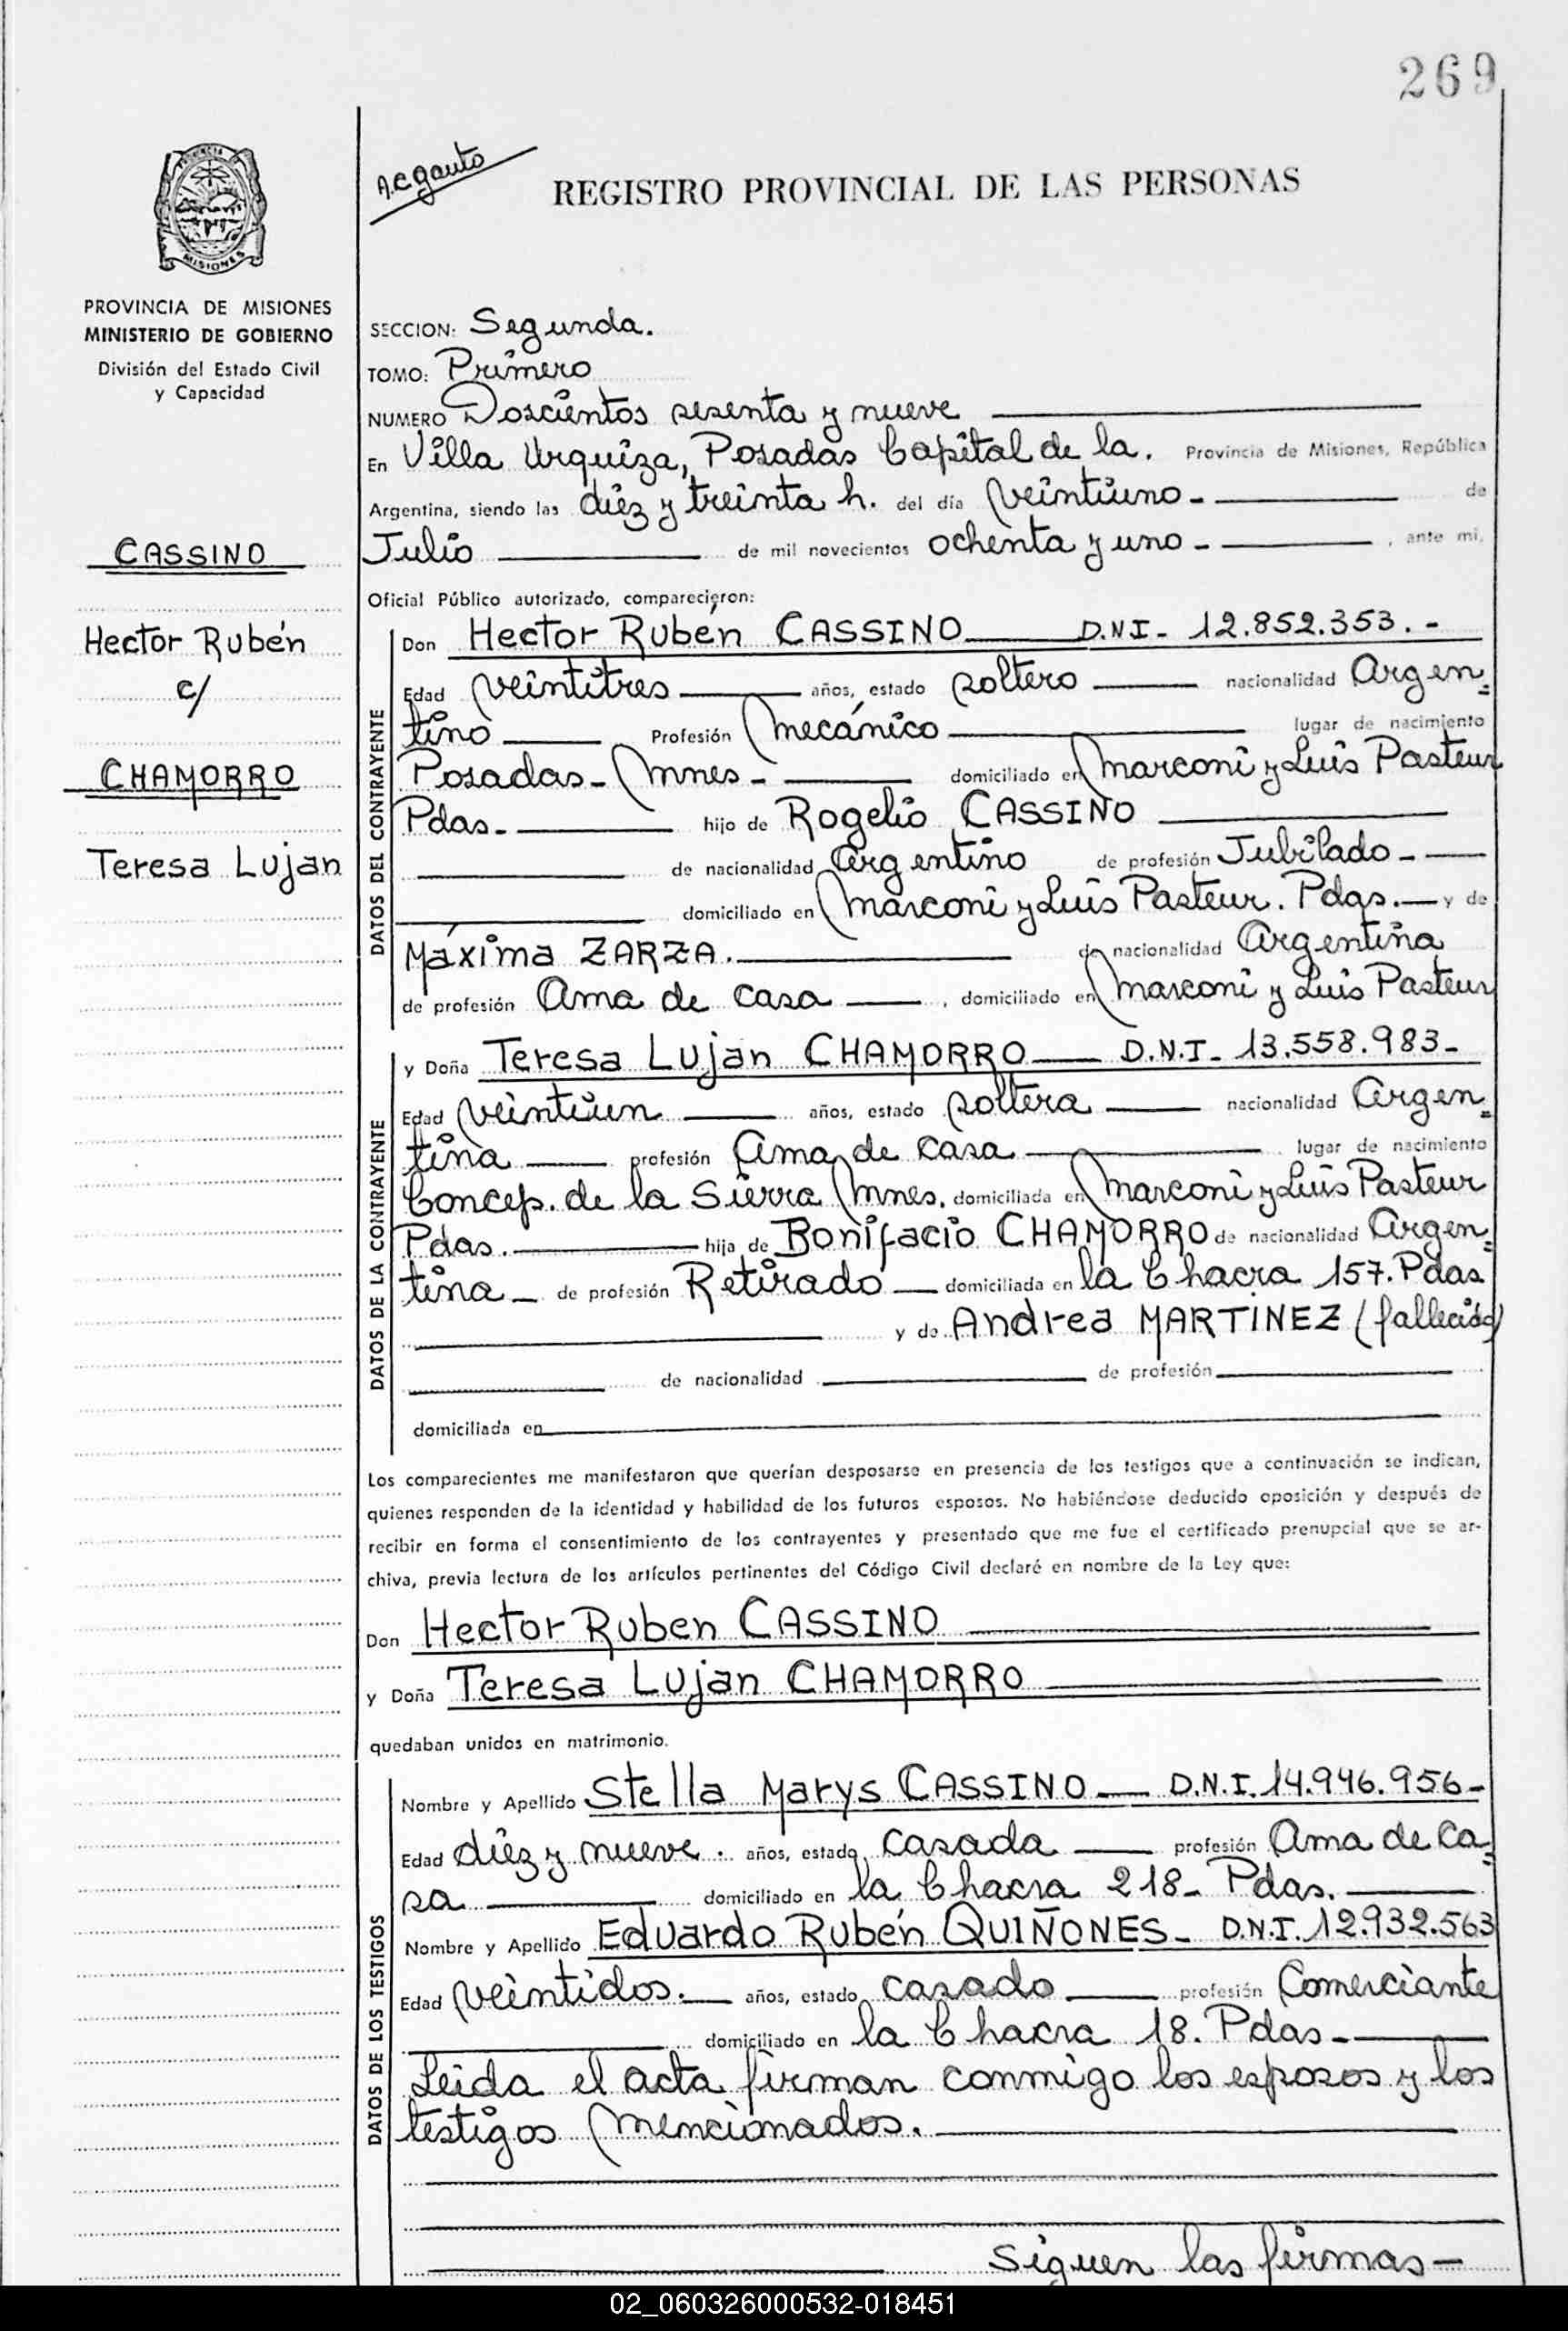 269
A.C. Gauto
REGISTRO PROVINCIAL DE LAS PERSONAS
PROVINCIA
MISIONES
PROVINCIA DE MISIONES
MINISTERIO DE GOBIERNO
División del Estado Civil
y Capacidad
CASSINO
Hector Rubén
c/
CHAMORRO
Teresa Lujan
SECCION: Segunda.
TOMO: Primero
NUMERO Doscientos sesenta y nueve
En Villa Urquiza, Posadas Capital de la. Provincia de Misiones, República
Argentina, siendo las diez y treinta h. del día veintiuno - de
Julio de mil novecientos ochenta y uno - , ante mi,
Oficial Público autorizado, comparecieron:
DATOS DEL CONTRAYENTE
Don Hector Rubén CASSINO D.N.I - 12.852.353. -
Edad veintitres años, estado soltero nacionalidad Argen=
tino Profesión mecánico lugar de nacimiento
Posadas - Mnes - domiciliado en Marconi y Luis Pasteur
Pdas. hijo de Rogelio CASSINO
de nacionalidad Argentino de profesión Jubilado -
domiciliado en Marconi y Luis Pasteur. Pdas. y de
Máxima ZARZA. de nacionalidad Argentina
de profesión Ama de casa , domiciliado en Marconi y Luis Pasteur
DATOS DE LA CONTRAYENTE
y Doña Teresa Lujan CHAMORRO D.N.I - 13.558.983 -
Edad veintiun años, estado soltera nacionalidad Argen=
tina profesión Ama de casa lugar de nacimiento
Concep. de la Sierra Mnes. domiciliada en Marconi y Luis Pasteur
Pdas. hija de Bonifacio CHAMORRO de nacionalidad Argen=
tina - de profesión Retirado domiciliada en la Chacra 157. Pdas
y de Andrea MARTINEZ (fallecida)
de nacionalidad de profesión
domiciliada en
Los comparecientes me manifestaron que querían desposarse en presencia de los testigos que a continuación se indican,
quienes responden de la identidad y habilidad de los futuros esposos. No habiéndose deducido oposición y después de
recibir en forma el consentimiento de los contrayentes y presentado que me fue el certificado prenupcial que se ar-
chiva, previa lectura de los artículos pertinentes del Código Civil declaré en nombre de la Ley que:
Don Hector Ruben CASSINO
y Doña Teresa Lujan CHAMORRO
quedaban unidos en matrimonio.
DATOS DE LOS TESTIGOS
Nombre y Apellido Stella Marys CASSINO D.N.I. 14.946.956 -
Edad diez y nueve. años, estado casada profesión Ama de Ca=
sa domiciliado en la Chacra 218 - Pdas.
Nombre y Apellido Eduardo Rubén QUIÑONES - D.N.I. 12.932.563
Edad veintidos. años, estado casado profesión Comerciante
domiciliado en la Chacra 18. Pdas -
Leida el acta firman conmigo los esposos y los
testigos mencionados.
Siguen las firmas -
02_060326000532-018451